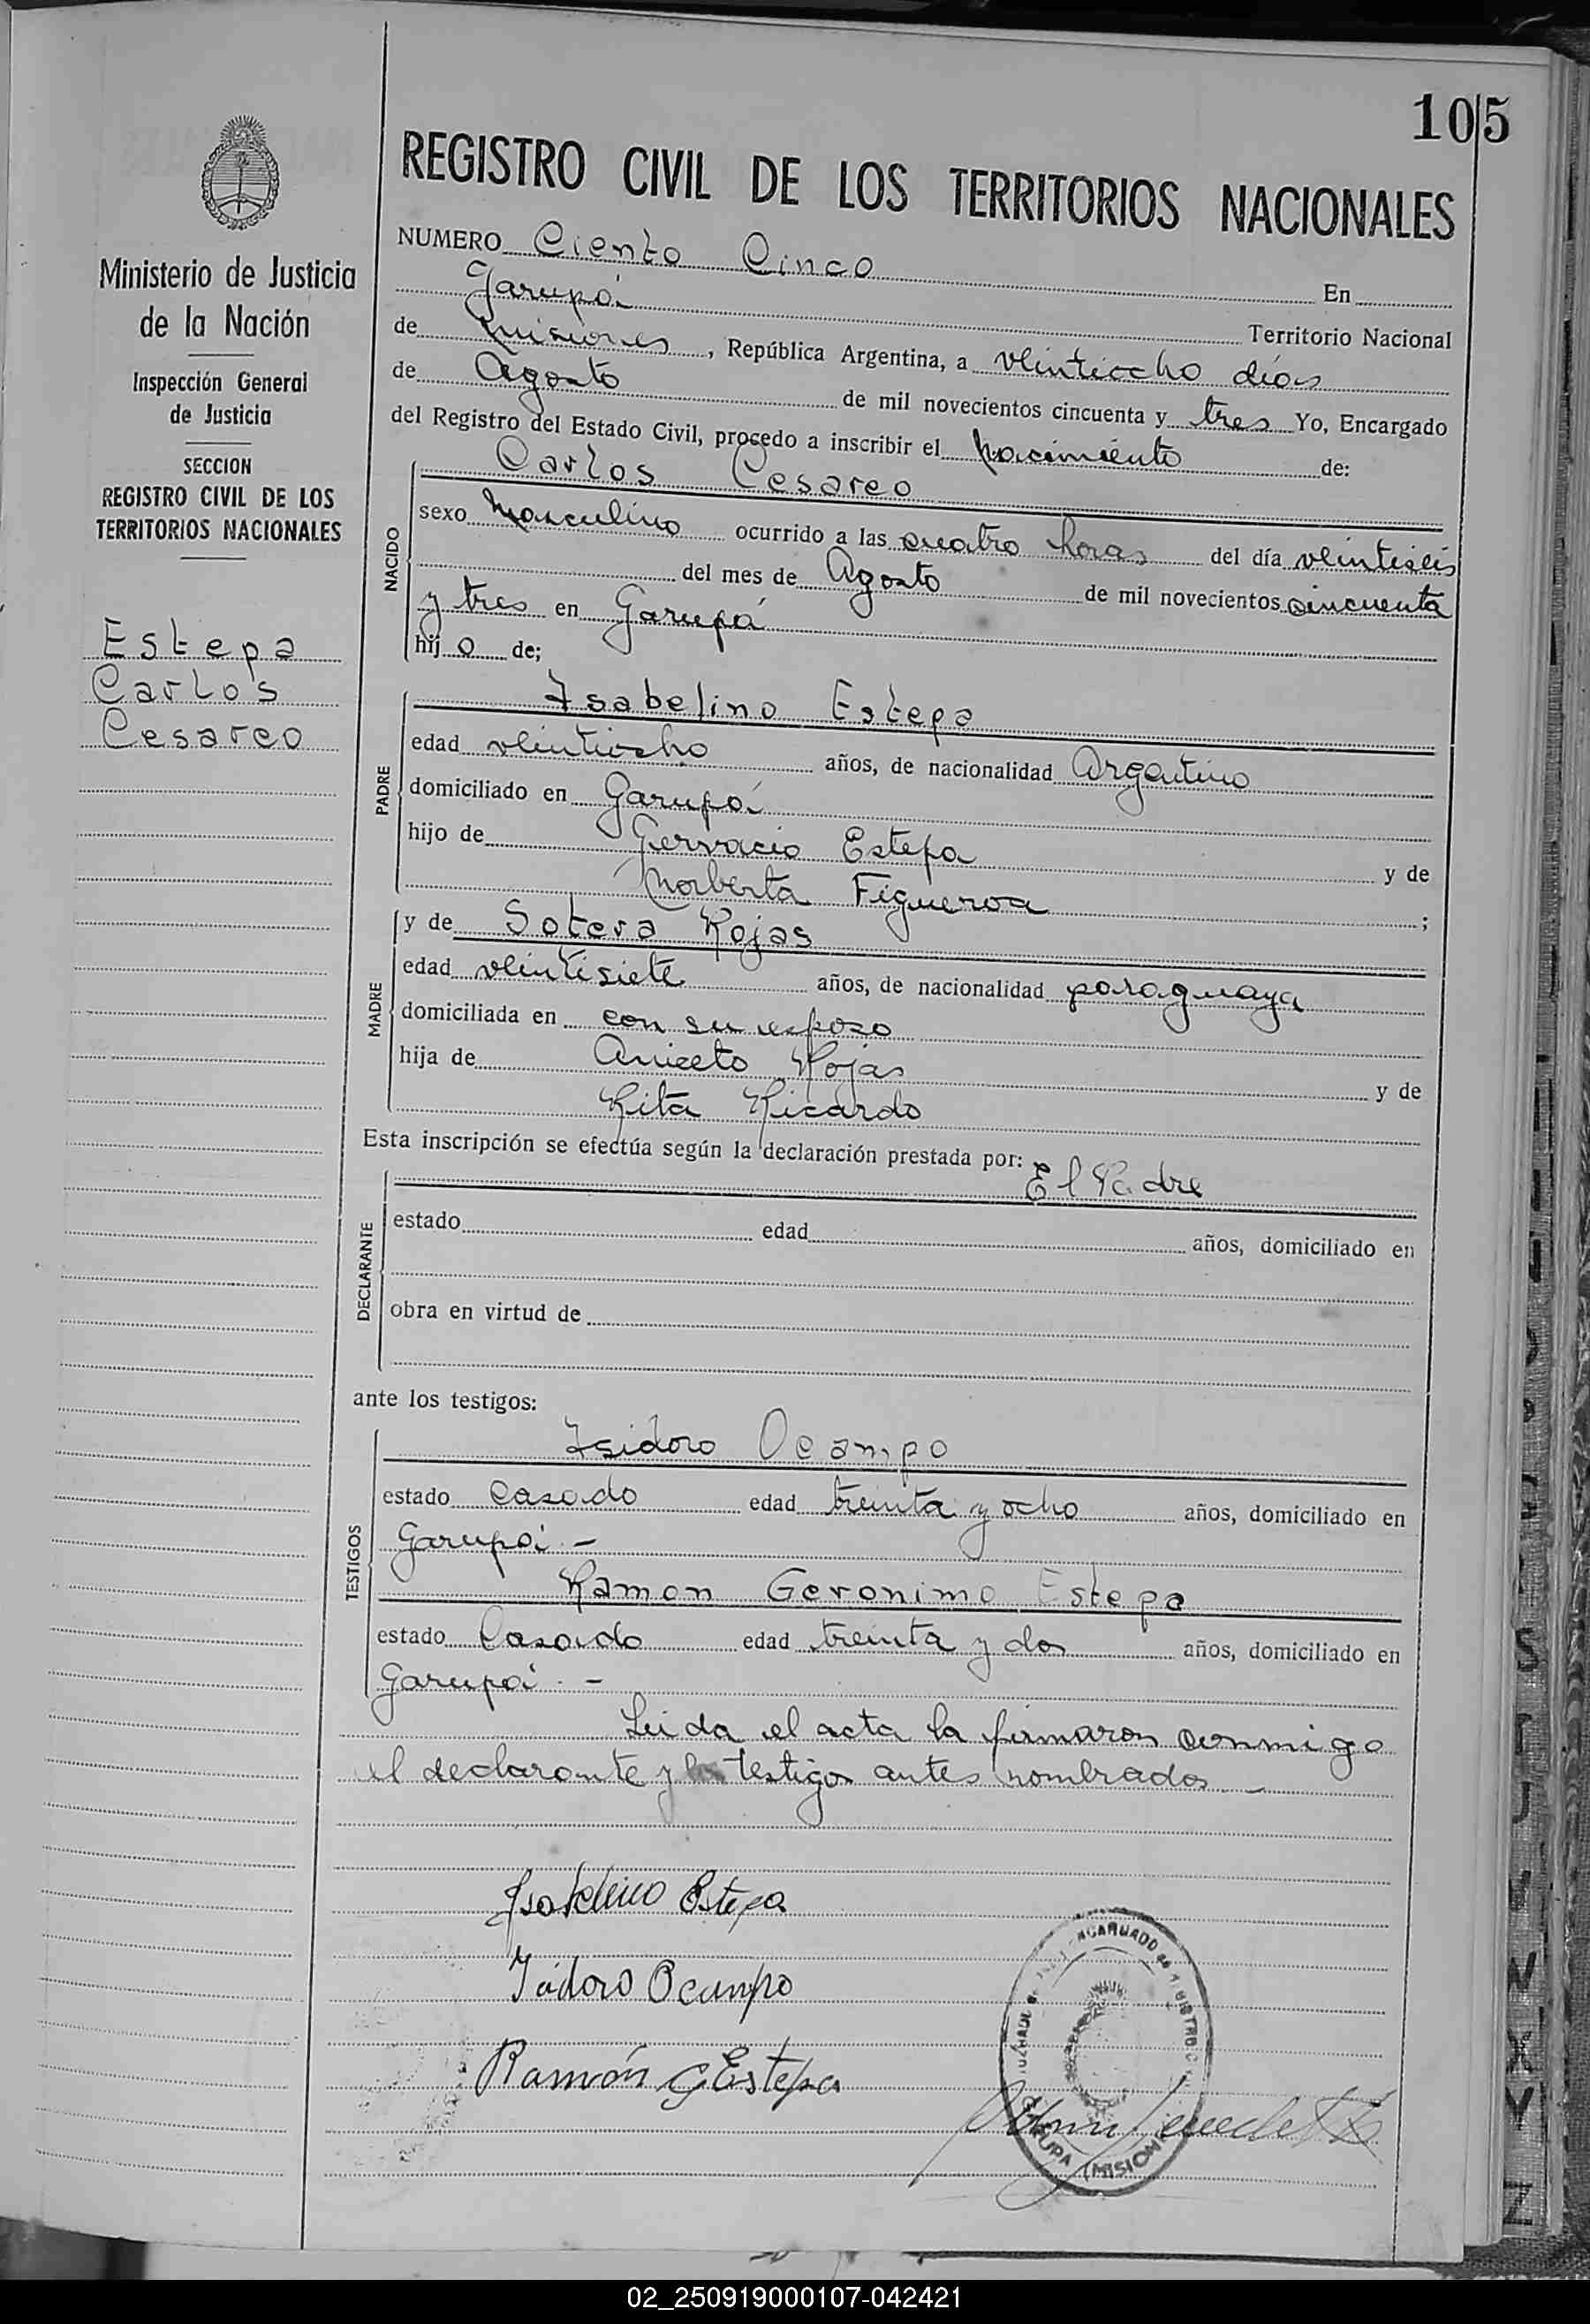 105
REGISTRO CIVIL DE LOS TERRITORIOS NACIONALES
Ministerio de Justicia
de la Nación
Inspección General
de Justicia
SECCION
REGISTRO CIVIL DE LOS
TERRITORIOS NACIONALES
Estepa
Carlos
Cesareo
NUMERO Ciento Cinco En
Garupá Territorio Nacional
de Misiones, República Argentina, a veintiocho días
de Agosto de mil novecientos cincuenta y tres Yo, Encargado
del Registro del Estado Civil, procedo a inscribir el Nacimiento de:
NACIDO
Carlos Cesareo
sexo Masculino ocurrido a las cuatro horas del día veintiseis
del mes de Agosto de mil novecientos cincuenta
y tres en Garupá
hijo de;
PADRE
Isabelino Estepa
edad veintiocho años, de nacionalidad Argentino
domiciliado en Garupá
hijo de Gervacio Estepa y de
Norberta Figueroa ;
MADRE
y de Sotera Rojas
edad veintisiete años, de nacionalidad paraguaya
domiciliada en con su esposo
hija de Aniceto Rojas y de
Rita Ricardo
Esta inscripción se efectúa según la declaración prestada por: El Padre
DECLARANTE
estado edad años, domiciliado en
obra en virtud de
ante los testigos:
TESTIGOS
Isidoro Ocampo
estado Casado edad treinta y ocho años, domiciliado en
Garupá.-
Ramon Geronimo Estepa
estado Casado edad treinta y dos años, domiciliado en
Garupá.-
Leida el acta la firmaron conmigo
el declarante y los testigos antes nombrados
Isabelino Estepa
Isidoro Ocampo
Ramón G Estepa
02_250919000107-042421